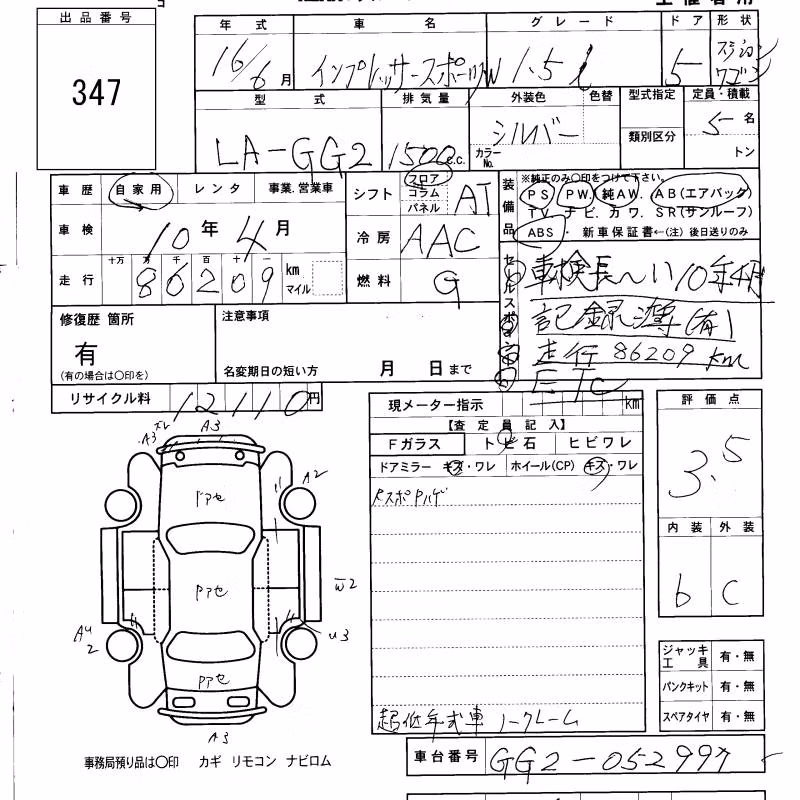 出品番号
347
年式 車名 グレード ドア 形状
16/6月 インプレッサースポーツW 1.5l 5 ステーション ワゴン
型式 排気量 外装色 色替 型式指定 定員・積載
LA-GG2 1500c.c. シルバー カラーNo. 類別区分 5名
トン
車歴 自家用 レンタ 事業.営業車
シフト フロア コラム パネル AT
装備品 ※純正のみ〇印をつけて下さい。
PS PW. 純AW. AB(エアバック)
TV. ナビ. カワ. SR(サンルーフ)
ABS ・ 新車保証書←(注) 後日送りのみ
車検 10年4月
冷房 AAC
走行 十万 万 千 百 十 一
86209 km マイル
燃料 G
セールスポイント
車検長〜い10年4月
記録簿(有)
走行 86209km
ETC
修復歴 箇所
有
(有の場合は〇印を)
注意事項
名変期日の短い方 月 日まで
リサイクル料 12110円
現メーター指示 km
【査定員記入】
Fガラス トビ石 ヒビワレ
ドアミラー キズ・ワレ ホイール(CP) キズ・ワレ
評価点
3.5
内装 外装
b C
A3
A3
A2
Pアセ
Pアセ
W2
U3
2
Pアセ
A3
超低年式車 ノークレーム
ジャッキ工具 有・無
パンクキット 有・無
スペアタイヤ 有・無
事務局預り品は〇印 カギ リモコン ナビロム
車台番号 GG2-052997